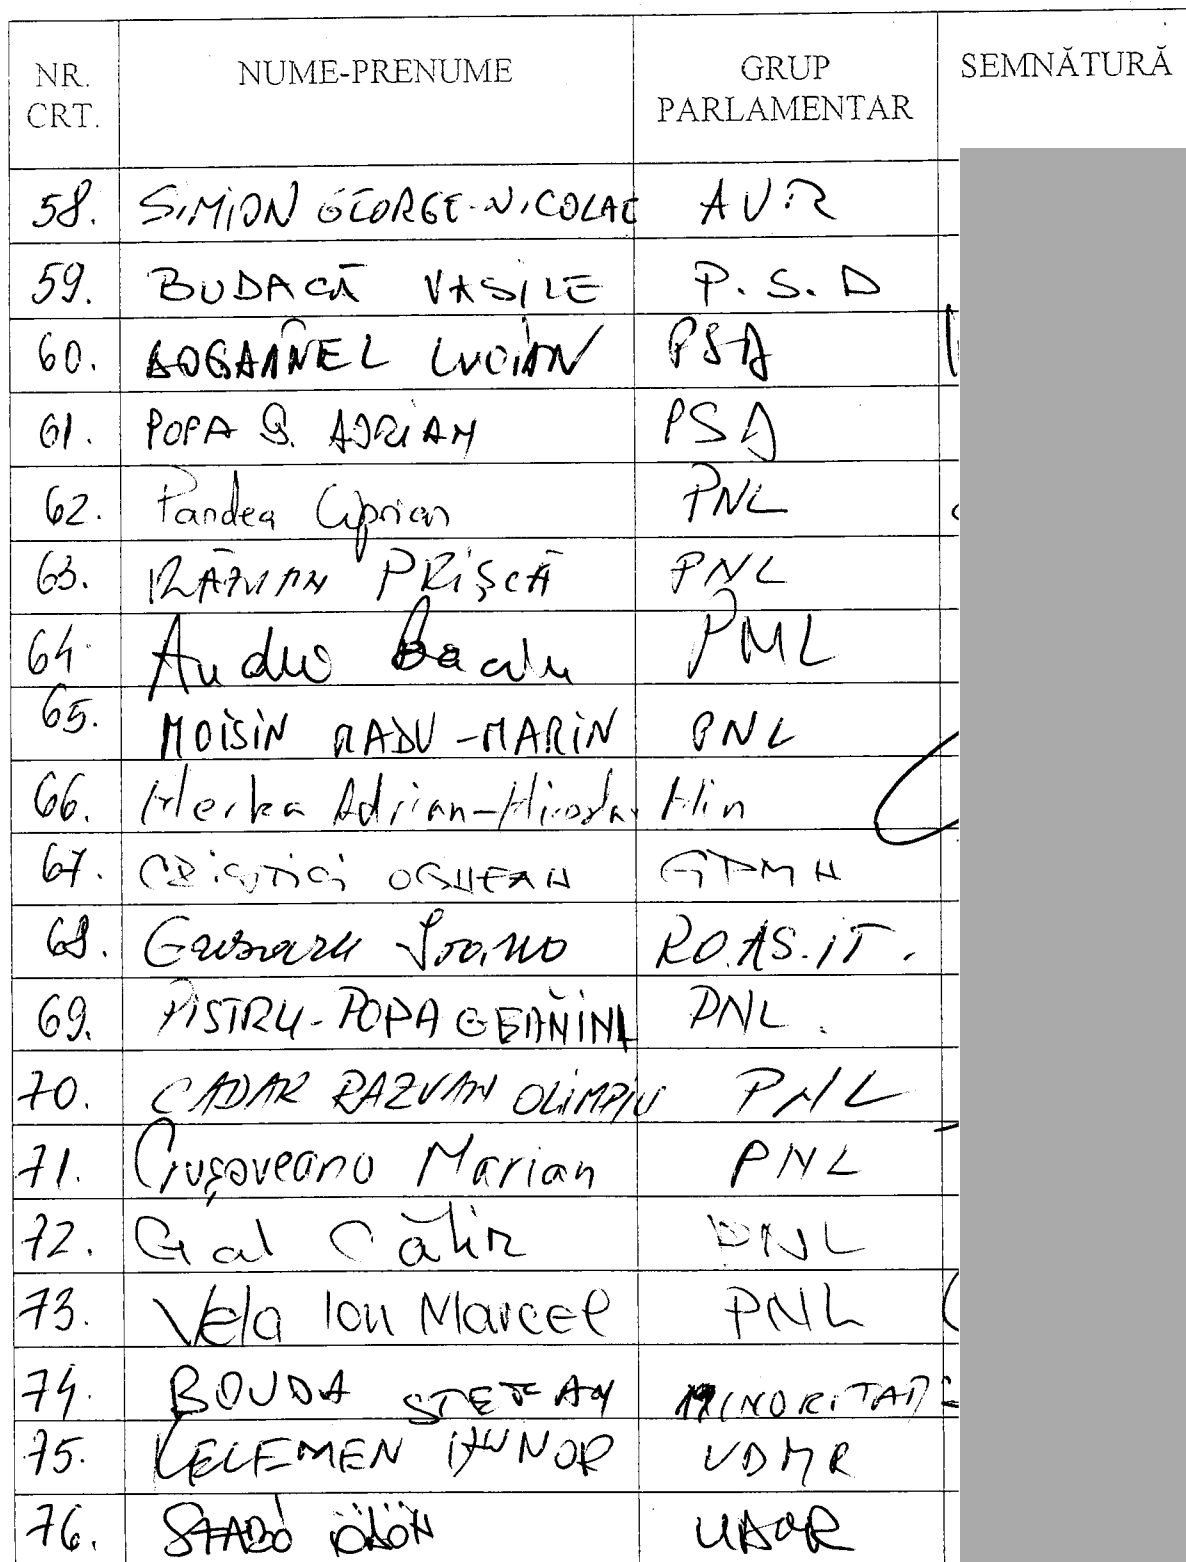 NR. CRT. NUME-PRENUME GRUP PARLAMENTAR SEMNĂTURĂ
58. SIMION GEORGE-NICOLAE AUR
59. BUDACĂ VASILE P.S.D
60. LUCIAN PSD
61. POPA Ș. ADRIAN PSD
62. Pandea Ciprian PNL
63. RĂZVAN PRIȘCĂ PNL
64. PNL
65. MOISIN RADU-MARIN PNL
66. Merka Adrian-Miroslav Min
67. OGNEAN
68. RO.AS.IT.
69. PISTRU-POPA PNL.
70. CADAR RAZVAN OLIMPIU PNL
71. Crușoveanu Marian PNL
72. Gal Călin PNL
73. Vela Ion Marcel PNL
74. BOUDA STEFAN MINORITAȚI
75. KELEMEN HUNOR UDMR
76. SZABÓ ÖDÖN UDMR